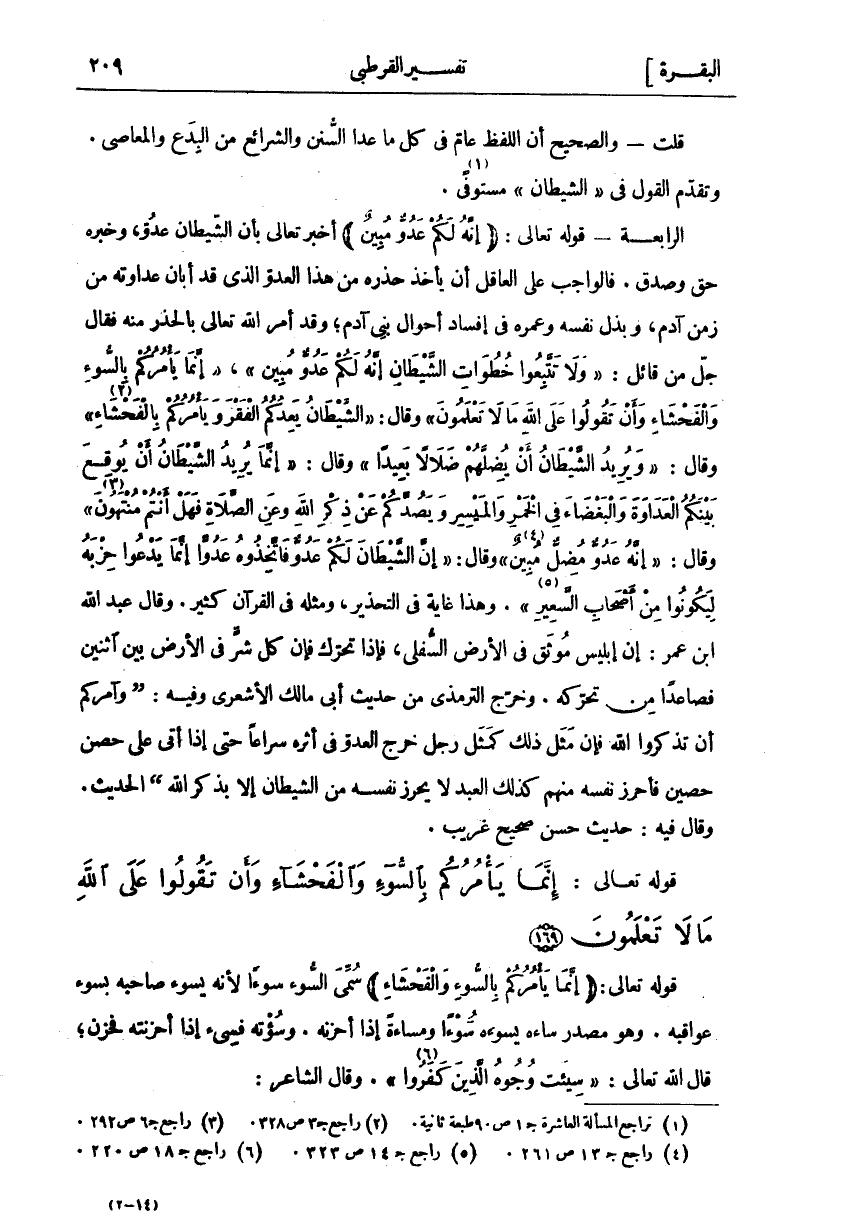 البقرة ] تفسير القرطبي ٢٠٩
قلت — والصحيح أن اللفظ عام فى كل ما عدا السُّنن والشرائع من البِدَع والمعاصى .
وتقدّم القول فى « الشيطان » مستوفًى (١) .
الرابعة — قوله تعالى : ﴿ إِنَّهُ لَكُمْ عَدُوٌّ مُبِينٌ ﴾ أخبر تعالى بأن الشّيطان عدوّ، وخبره
حق وصدق . فالواجب على العاقل أن يأخذ حذره من هذا العدوّ الذى قد أبان عداوته من
زمن آدم، وبذل نفسه وعمره فى إفساد أحوال بنى آدم؛ وقد أمر الله تعالى بالحذر منه فقال
جلّ من قائل : « وَلَا تَتَّبِعُوا خُطُوَاتِ الشَّيْطَانِ إِنَّهُ لَكُمْ عَدُوٌّ مُبِين » ، « إِنَّمَا يَأْمُرُكُمْ بِالسُّوءِ
وَالْفَحْشَاءِ وَأَنْ تَقُولُوا عَلَى اللهِ مَا لَا تَعْلَمُونَ» وقال: «الشَّيْطَانُ يَعِدُكُمُ الْفَقْرَ وَيَأْمُرُكُمْ بِالْفَحْشَاءِ» (٢)
وقال : « وَيُرِيدُ الشَّيْطَانُ أَنْ يُضِلَّهُمْ ضَلَالًا بَعِيدًا » وقال : « إِنَّمَا يُرِيدُ الشَّيْطَانُ أَنْ يُوقِعَ
بَيْنَكُمُ الْعَدَاوَةَ وَالْبَغْضَاءَ فِي الْخَمْرِ وَالْمَيْسِرِ وَيَصُدَّكُمْ عَنْ ذِكْرِ اللهِ وعَنِ الصَّلَاةِ فَهَلْ أَنْتُمْ مُنْتَهُونَ» (٣)
وقال : « إِنَّهُ عَدُوٌّ مُضِلٌّ مُبِينٌ» (٤) وقال: « إِنَّ الشَّيْطَانَ لَكُمْ عَدُوٌّ فَاتَّخِذُوهُ عَدُوًّا إِنَّمَا يَدْعُوا حِزْبَهُ
لِيَكُونُوا مِنْ أَصْحَابِ السَّعِيرِ » (٥) . وهذا غاية فى التحذير، ومثله فى القرآن كثير . وقال عبد الله
ابن عمر : إن إبليس مُوثَق فى الأرض السُّفلى، فإذا تحرّك فإن كل شرٍّ فى الأرض بين اثنين
فصاعدًا من تحرّكه . وخرّج الترمذى من حديث أبى مالك الأشعرى وفيه : ” وآمركم
أن تذكروا الله فإن مَثَل ذلك كَمَثَل رجل خرج العدوّ فى أثره سراعاً حتى إذا أتى على حصن
حصين فأحرز نفسه منهم كذلك العبد لا يحرز نفسه من الشيطان إلا بذكر الله “ الحديث.
وقال فيه : حديث حسن صحيح غريب .
قوله تعالى : إِنَّمَا يَأْمُرُكُم بِٱلسُّوٓءِ وَٱلْفَحْشَآءِ وَأَن تَقُولُوا عَلَى ٱللَّهِ
مَا لَا تَعْلَمُونَ ﴿١٦٩﴾
قوله تعالى: ﴿ إِنَّمَا يَأْمُرُكُمْ بِالسُّوءِ وَالْفَحْشَاءِ ﴾ سُمِّىَ السُّوء سوءًا لأنه يسوء صاحبه بسوء
عواقبه . وهو مصدر ساءه يسوءه سُوْءًا ومساءةً إذا أحزنه . وسُؤْته فسِىء إذا أحزنته فحزن؛
قال الله تعالى : « سِيئَتْ وُجُوهُ الَّذِينَ كَفَرُوا » (٦) . وقال الشاعر :
(١) تراجع المسألة العاشرة جـ ١ ص ٩٠ طبعة ثانية . (٢) راجع جـ ٣ ص ٣٢٨ . (٣) راجع جـ ٦ ص ٢٩٢ .
(٤) راجع جـ ١٣ ص ٢٦١ . (٥) راجع جـ ١٤ ص ٣٢٣ . (٦) راجع جـ ١٨ ص ٢٢٠ .
(٢-١٤)